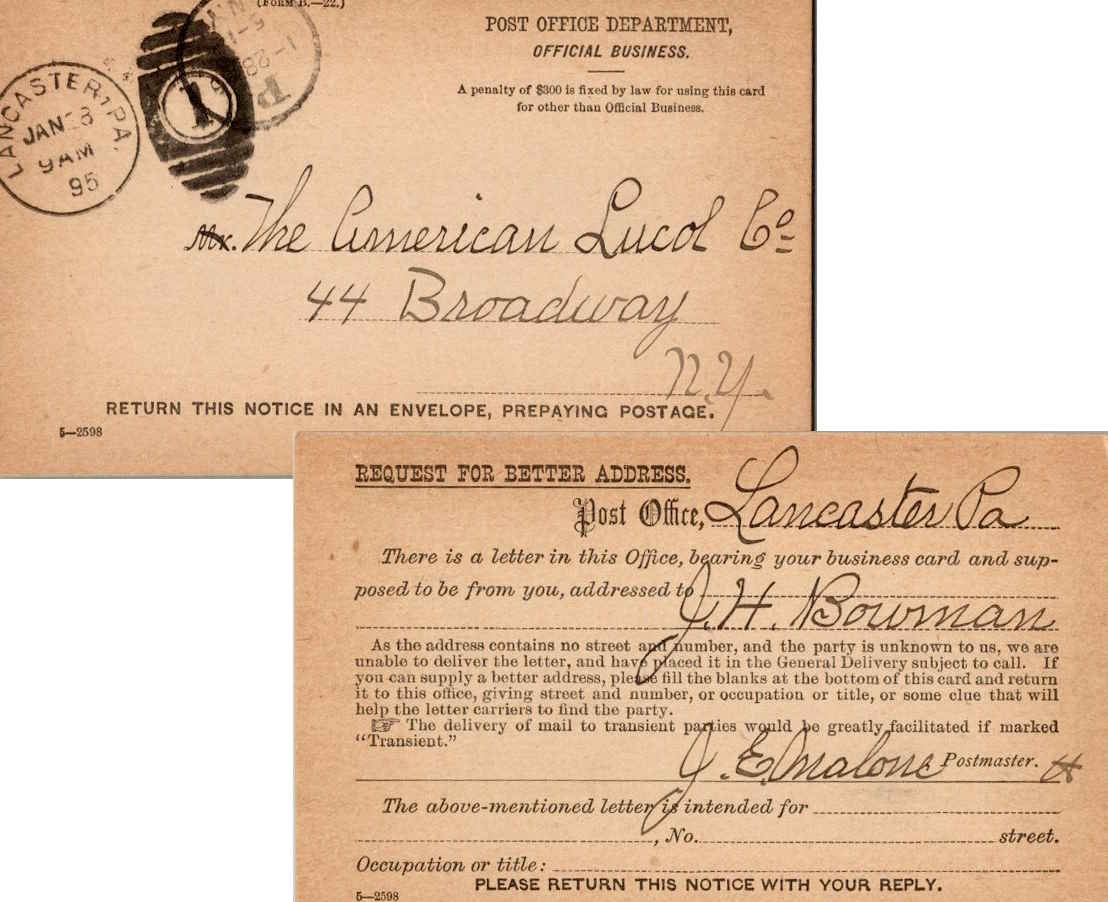 (FORM B.—22.)
POST OFFICE DEPARTMENT,
OFFICIAL BUSINESS.
A penalty of $300 is fixed by law for using this card
for other than Official Business.
LANCASTER, PA,
JAN 28
9 AM
95
1
Mr. The American Lucol Co
44 Broadway
N.Y.
RETURN THIS NOTICE IN AN ENVELOPE, PREPAYING POSTAGE.
5—2598
REQUEST FOR BETTER ADDRESS.
Post Office, Lancaster Pa
There is a letter in this Office, bearing your business card and sup-
posed to be from you, addressed to
J. H. Bowman
As the address contains no street and number, and the party is unknown to us, we are
unable to deliver the letter, and have placed it in the General Delivery subject to call. If
you can supply a better address, please fill the blanks at the bottom of this card and return
it to this office, giving street and number, or occupation or title, or some clue that will
help the letter carriers to find the party.
☞ The delivery of mail to transient parties would be greatly facilitated if marked
“Transient.”
J. E. Malone Postmaster. H
The above-mentioned letter is intended for
, No. street.
Occupation or title:
PLEASE RETURN THIS NOTICE WITH YOUR REPLY.
5—2598